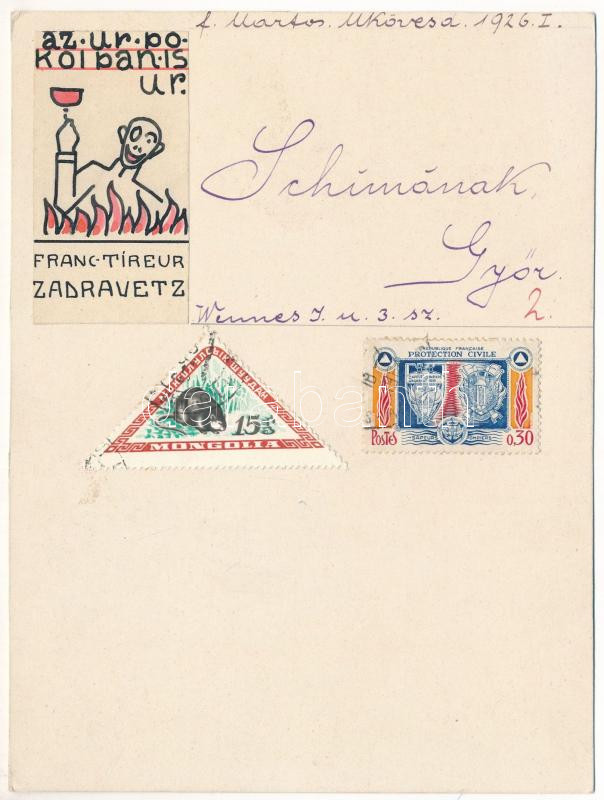 f. Martos. Mkövesa. 1926. I.
az·ur·po-
kol ban·is
ur.
FRANC-TÍREUR
ZADRAVETZ
Schimának,
Győr.
Wennes J. u. 3. sz. 2.
MONGOLIA
15
RÉPUBLIQUE FRANÇAISE
PROTECTION CIVILE
POSTES
0,30